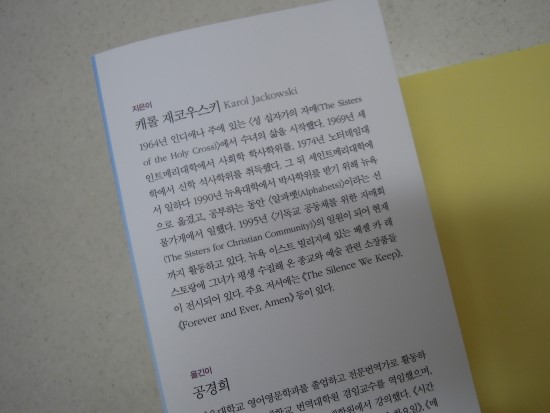 지은이
캐롤 재코우스키 Karol Jackowski
1964년 인디애나 주에 있는 〈성 십자가의 자매(The Sisters
of the Holy Cross)〉에서 수녀의 삶을 시작했다. 1969년 세
인트메리대학에서 사회학 학사학위를, 1974년 노터데임대
학에서 신학 석사학위를 취득했다. 그 뒤 세인트메리대학에
서 일하다 1990년 뉴욕대학에서 박사학위를 받기 위해 뉴욕
으로 옮겼고, 공부하는 동안 〈알파벳(Alphabets)〉이라는 선
물가게에서 일했다. 1995년 〈기독교 공동체를 위한 자매회
(The Sisters for Christian Community)〉의 일원이 되어 현재
까지 활동하고 있다. 뉴욕 이스트 빌리지에 있는 베셀 카 레
스토랑에 그녀가 평생 수집해 온 종교와 예술 관련 소장품들
이 전시되어 있다. 주요 저서에는 《The Silence We Keep》,
《Forever and Ever, Amen》 등이 있다.
옮긴이
공경희
대학교 영어영문학과를 졸업하고 전문번역가로 활동하
대학교 번역대학원 겸임교수를 역임했으며,
대학원에서 강의했다. 《시간